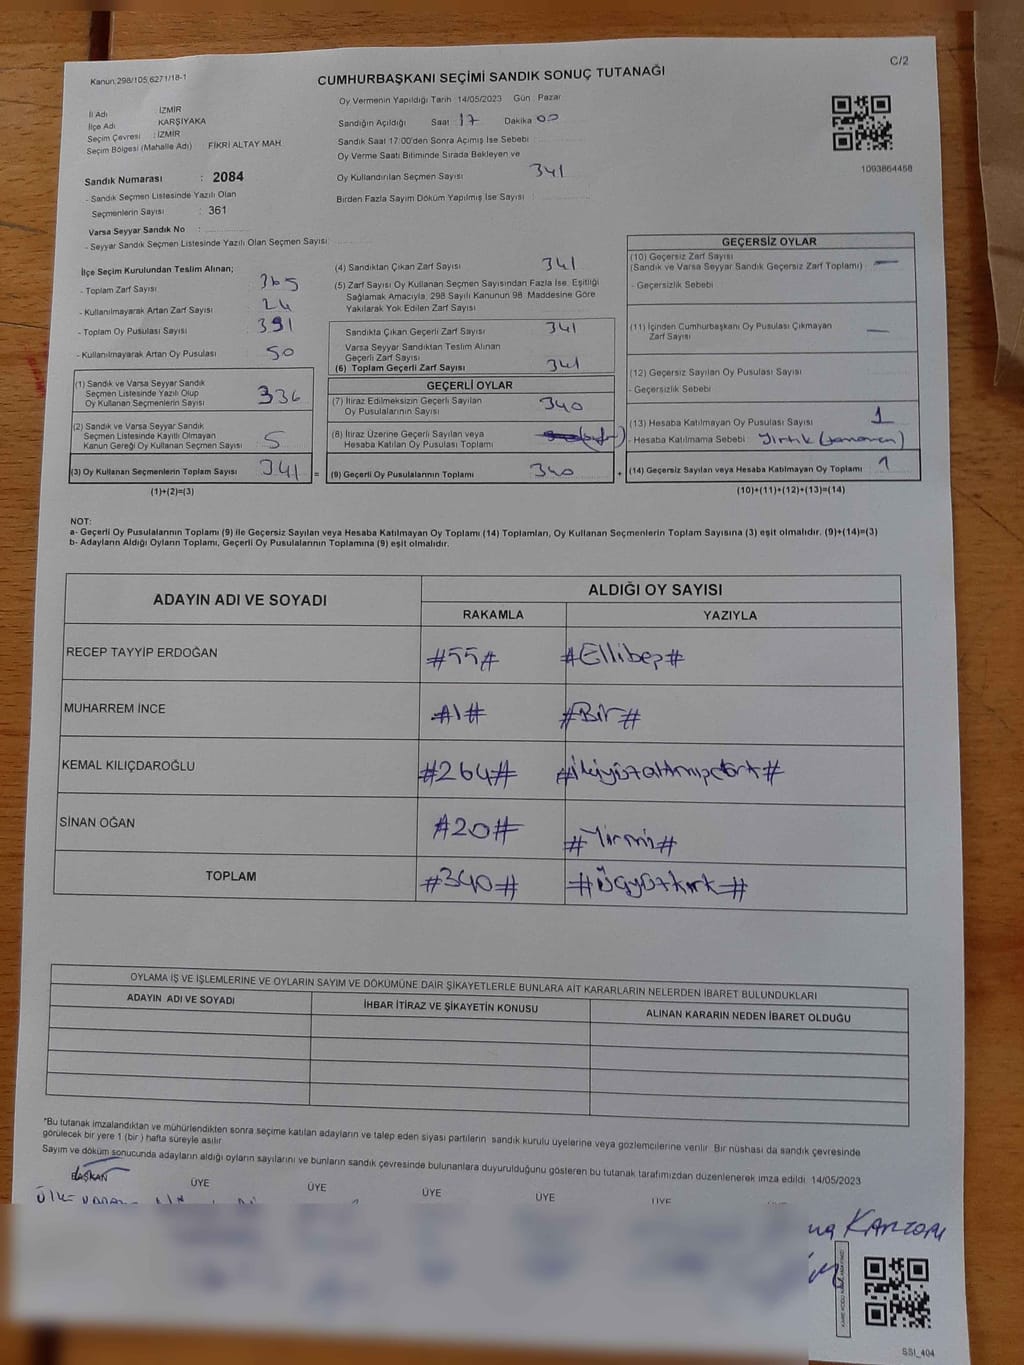 Kanun:298/105,6271/18-1
C/2
CUMHURBAŞKANI SEÇİMİ SANDIK SONUÇ TUTANAĞI
İl Adı : İZMİR
İlçe Adı : KARŞIYAKA
Seçim Çevresi : İZMİR
Seçim Bölgesi (Mahalle Adı) FİKRİ ALTAY MAH
Sandık Numarası : 2084
- Sandık Seçmen Listesinde Yazılı Olan
Seçmenlerin Sayısı : 361
Varsa Seyyar Sandık No :
- Seyyar Sandık Seçmen Listesinde Yazılı Olan Seçmen Sayısı:
Oy Vermenin Yapıldığı Tarih 14/05/2023 Gün Pazar
Sandığın Açıldığı Saat 17 Dakika 00
Sandık Saat 17:00'den Sonra Açımış İse Sebebi
Oy Verme Saati Bitiminde Sırada Bekleyen ve
Oy Kullandırılan Seçmen Sayısı 341
Birden Fazla Sayım Döküm Yapılmış İse Sayısı :
1093864458
İlçe Seçim Kurulundan Teslim Alınan;
- Toplam Zarf Sayısı 365
- Kullanılmayarak Artan Zarf Sayısı 24
- Toplam Oy Pusulası Sayısı 391
- Kullanılmayarak Artan Oy Pusulası 50
(1) Sandık ve Varsa Seyyar Sandık
Seçmen Listesinde Yazılı Olup
Oy Kullanan Seçmenlerin Sayısı 336
(2) Sandık ve Varsa Seyyar Sandık
Seçmen Listesinde Kayıtlı Olmayan
Kanun Gereği Oy Kullanan Seçmen Sayısı 5
(3) Oy Kullanan Seçmenlerin Toplam Sayısı 341 =
(1)+(2)=(3)
(4) Sandıktan Çıkan Zarf Sayısı 341
(5) Zarf Sayısı Oy Kullanan Seçmen Sayısından Fazla İse, Eşitliği
Sağlamak Amacıyla, 298 Sayılı Kanunun 98. Maddesine Göre
Yakılarak Yok Edilen Zarf Sayısı
Sandıkta Çıkan Geçerli Zarf Sayısı 341
Varsa Seyyar Sandıktan Teslim Alınan
Geçerli Zarf Sayısı
(6) Toplam Geçerli Zarf Sayısı 341
GEÇERLİ OYLAR
(7) İtiraz Edilmeksizin Geçerli Sayılan
Oy Pusulalarının Sayısı 340
(8) İtiraz Üzerine Geçerli Sayılan veya
Hesaba Katılan Oy Pusulası Toplamı
(9) Geçerli Oy Pusulalarının Toplamı 340 +
GEÇERSİZ OYLAR
(10) Geçersiz Zarf Sayısı
(Sandık ve Varsa Seyyar Sandık Geçersiz Zarf Toplamı) —
- Geçersizlik Sebebi
(11) İçinden Cumhurbaşkanı Oy Pusulası Çıkmayan
Zarf Sayısı —
(12) Geçersiz Sayılan Oy Pusulası Sayısı
- Geçersizlik Sebebi
(13) Hesaba Katılmayan Oy Pusulası Sayısı 1
- Hesaba Katılmama Sebebi Yırtık
(14) Geçersiz Sayılan veya Hesaba Katılmayan Oy Toplamı 1
(10)+(11)+(12)+(13)=(14)
NOT:
a- Geçerli Oy Pusulalarının Toplamı (9) ile Geçersiz Sayılan veya Hesaba Katılmayan Oy Toplamı (14) Toplamları, Oy Kullanan Seçmenlerin Toplam Sayısına (3) eşit olmalıdır. (9)+(14)=(3)
b- Adayların Aldığı Oyların Toplamı, Geçerli Oy Pusulalarının Toplamına (9) eşit olmalıdır.
ADAYIN ADI VE SOYADI ALDIĞI OY SAYISI
RAKAMLA YAZIYLA
RECEP TAYYİP ERDOĞAN #55# #Ellibeş#
MUHARREM İNCE #1# #Bir#
KEMAL KILIÇDAROĞLU #264# #İkiyüzaltmışdört#
SİNAN OĞAN #20# #Yirmi#
TOPLAM #340# #Üçyüzkırk#
OYLAMA İŞ VE İŞLEMLERİNE VE OYLARIN SAYIM VE DÖKÜMÜNE DAİR ŞİKAYETLERLE BUNLARA AİT KARARLARIN NELERDEN İBARET BULUNDUKLARI
ADAYIN ADI VE SOYADI İHBAR İTİRAZ VE ŞİKAYETİN KONUSU ALINAN KARARIN NEDEN İBARET OLDUĞU
*Bu tutanak imzalandıktan ve mühürlendikten sonra seçime katılan adayların ve talep eden siyasi partilerin sandık kurulu üyelerine veya gözlemcilerine verilir. Bir nüshası da sandık çevresinde
görülecek bir yere 1 (bir ) hafta süreyle asılır.
Sayım ve döküm sonucunda adayların aldığı oyların sayılarını ve bunların sandık çevresinde bulunanlara duyurulduğunu gösteren bu tutanak tarafımızdan düzenlenerek imza edildi. 14/05/2023
BAŞKAN ÜYE ÜYE ÜYE ÜYE ÜYE
SSI_404